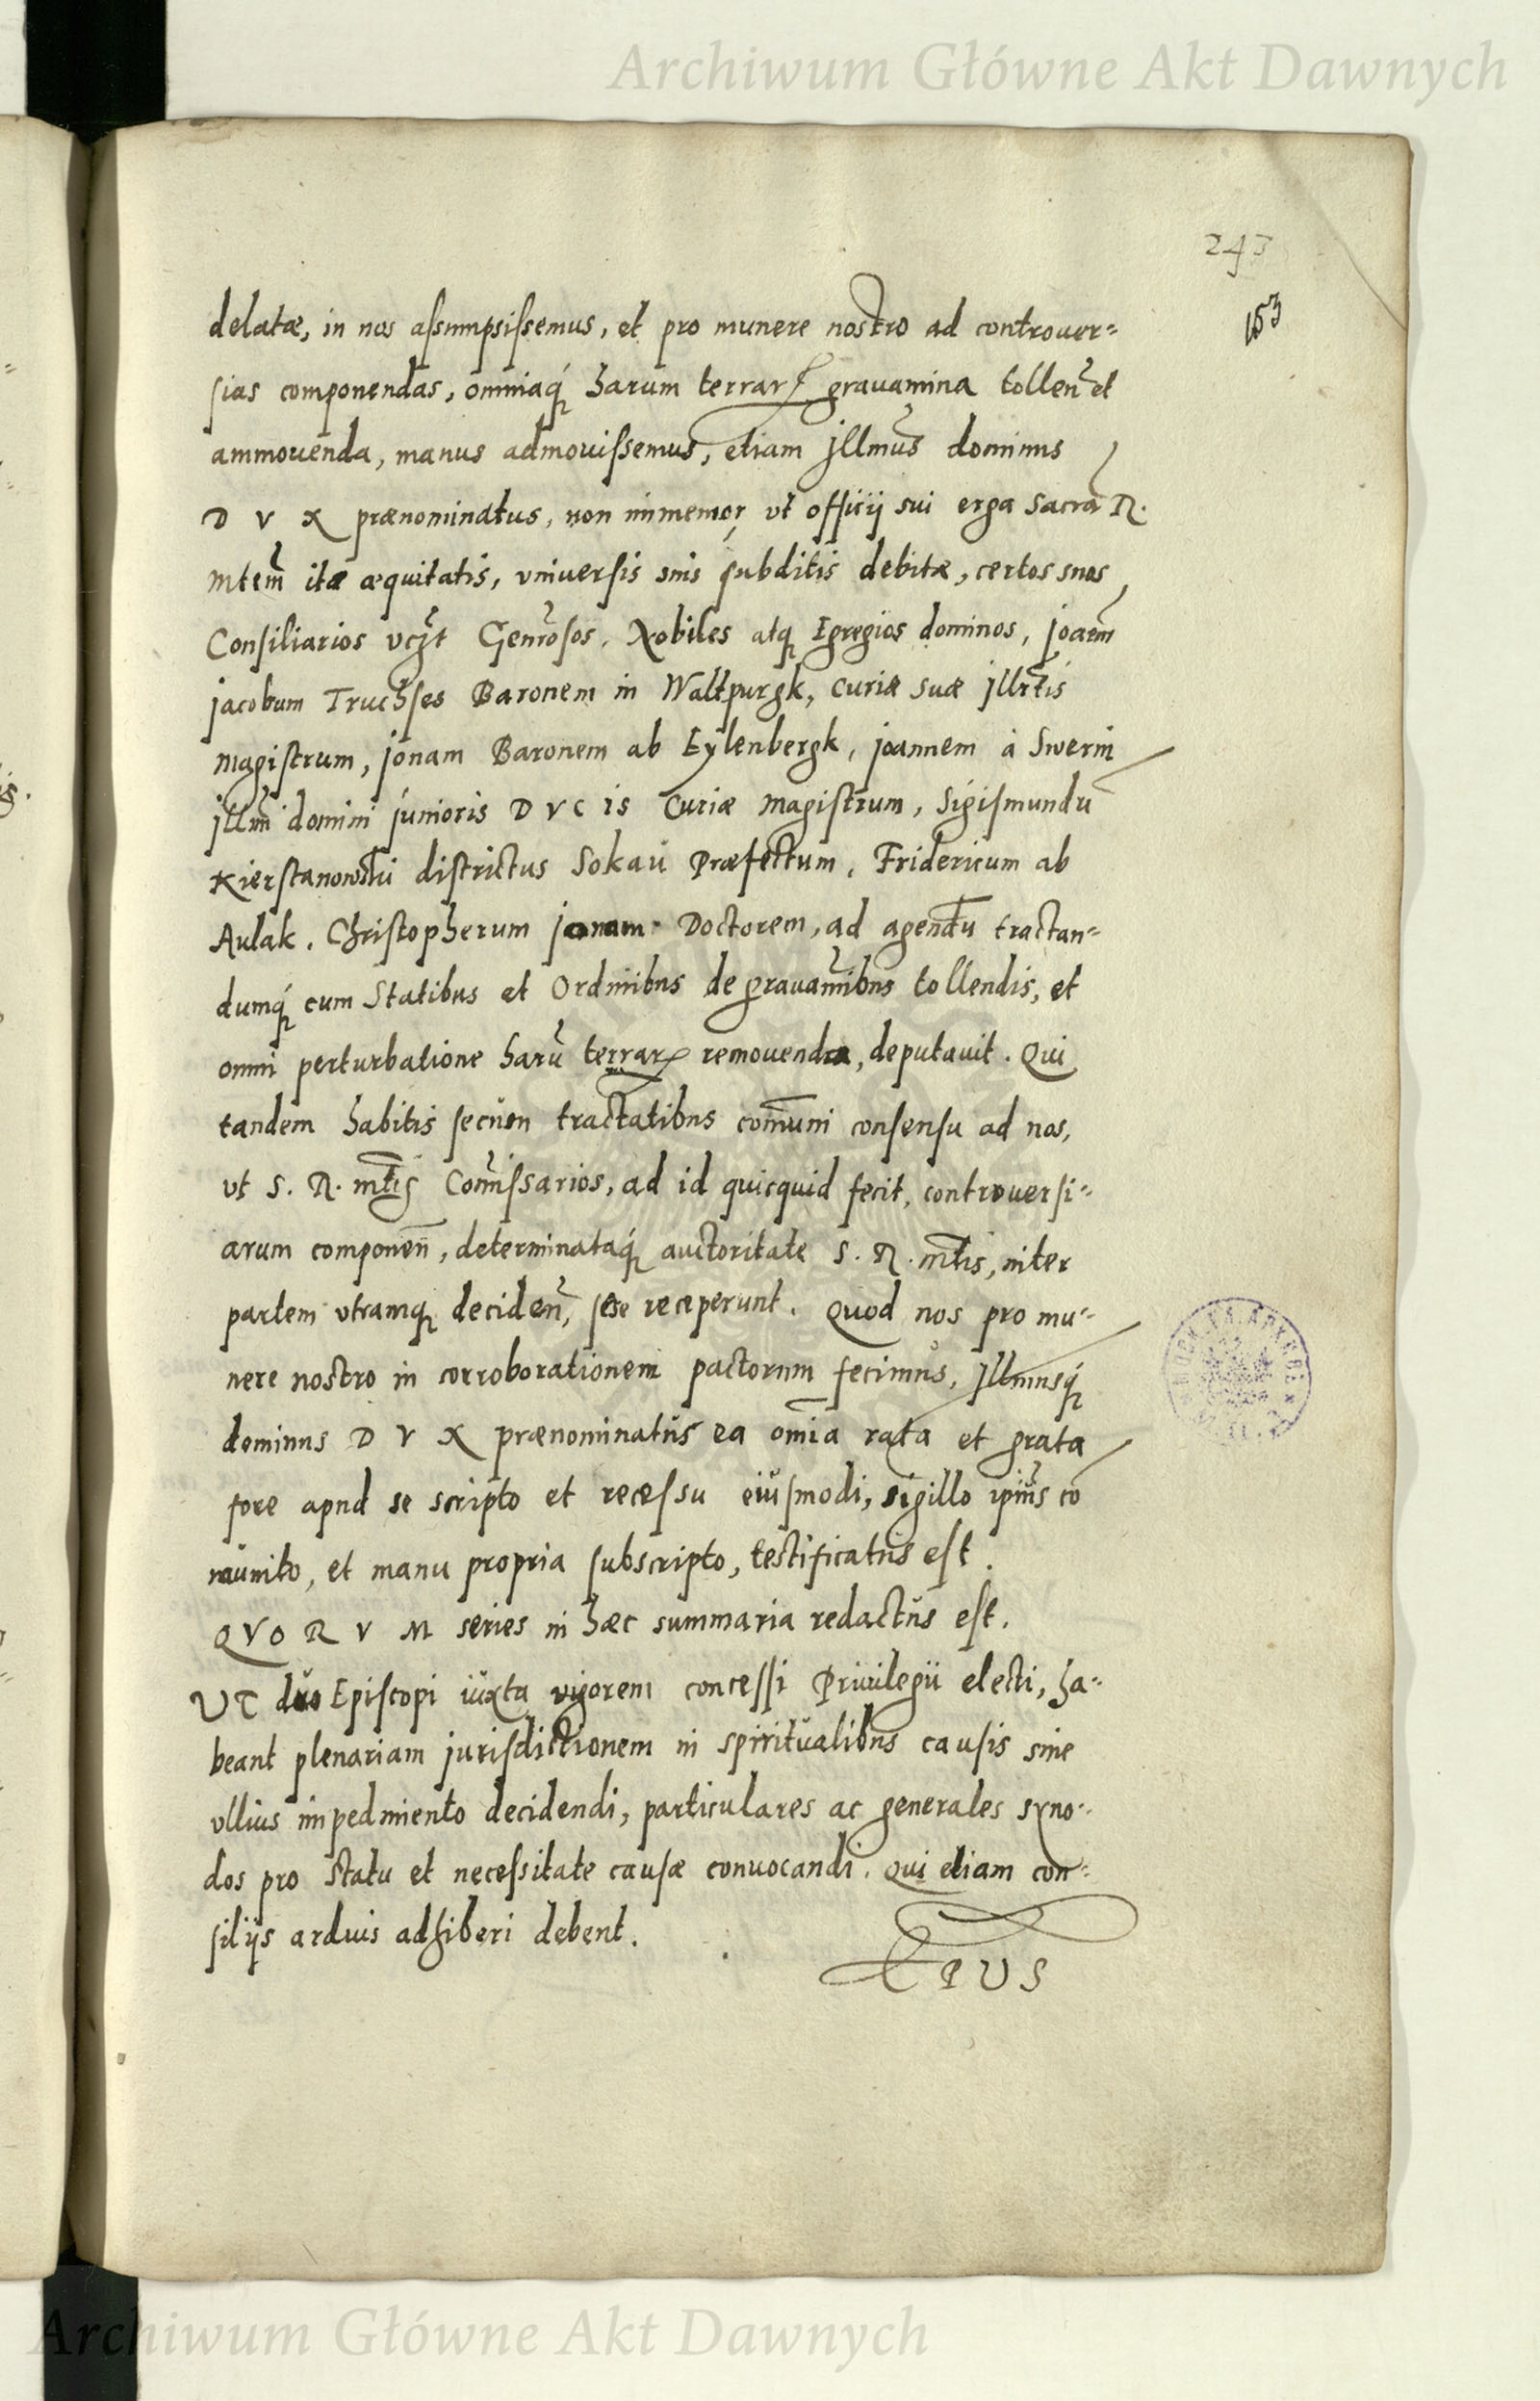 Archiwum Główne Akt Dawnych
243
153
delatæ, in nos assumpsissemus, et pro munere nostro ad controuer=
sias componendas, omniaq́ꝫ harum terrarꝝ grauamina tollen̄ et
ammouenda, manus admouissemus, etiam jllmūs dominus
D V X prænominatus, non immemor vt officij sui erga Sacrā R.
mtem̄ ita æquitatis, vniuersis suis subditis debitæ, certos suos
Consiliarios vcꝫt Genrōsos, Nobiles atqꝫ Egregios dominos, joaem̄
jacobum Truchses Baronem in Waltpurgk, Curiæ suæ jllrt̄is
magistrum, jonam Baronem ab Eylenbergk, joannem à Swerin
jllmī domini junioris D V C is Curiæ magistrum, Sigismundū
Kierstanowski districtus Sokaū Præfectum, Fridericum ab
Aulak, Christopherum jonam Doctorem, ad agend̄u tractan=
dumq́ꝫ cum Statibus et Ordinibus de grauam̄ibus tollendis, et
omni perturbatione harū terrarꝝ remouenda, deputauit. Qui
tandem habitis secum tractatibus com̄uni consensu ad nos,
vt S. R. mt̄is Com̄issarios, ad id quicquid fecit, controuersi=
arum componen̄, determinataq́ꝫ auctoritate S. R. mt̄is, inter
partem vtramqꝫ deciden̄, sese receperunt. Quod nos pro mu=
nere nostro in corroborationem pactorum fecimus, Jllmusq́ꝫ
dominus D V X prænominatus ea om̄ia rata et grata
fore apud se scripto et recessu eiusmodi, sigillo ipiūs co
munito, et manu propria subscripto, testificatus est.
QVORVM series in hæc summaria redactus est.
UT duo Episcopi iuxta vigorem concessi Priuilegij electi, ha=
beant plenariam jurisdictionem in spiritualibus causis sine
vllius impedimento decidendi, particulares ac generales syno=
dos pro statu et necessitate causæ conuocandi. Qui etiam con=
silijs arduis adhiberi debent.
EPUS
Archiwum Główne Akt Dawnych